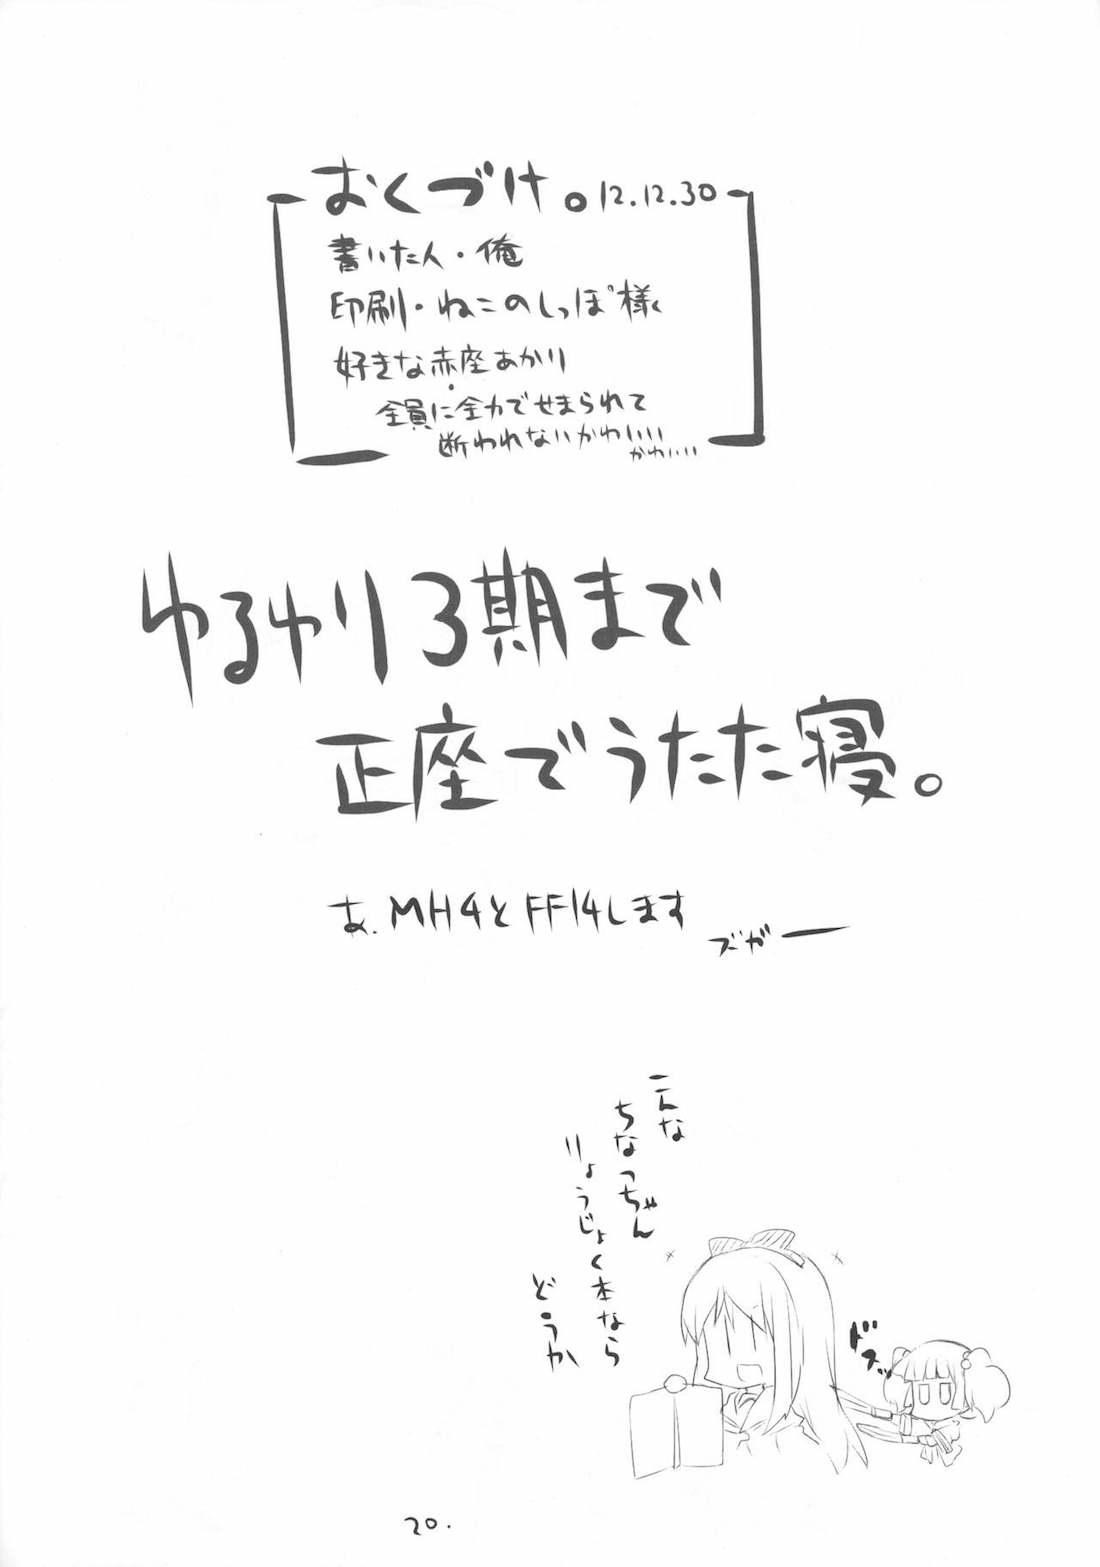 おくづけ。12.12.30
書いた人・俺
印刷・ねこのしっぽ様
好きな赤座あかり
・全員に全力でせまられて
断われないかわいい
かわいい
ゆるゆり3期まで
正座でうたた寝。
あ、MH4とFF14します
ズガー
こんな
ちなっちゃん
りょうじょく本なら
どうか
ドスッ
20.